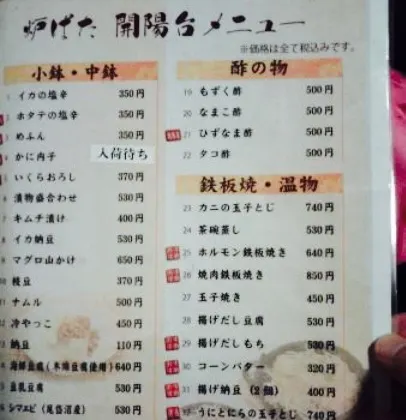 炉ばた 開陽台メニュー
※価格は全て税込みです。
小鉢・中鉢
1 イカの塩辛 350円
2 ホタテの塩辛 350円
3 めふん 350円
4 かに内子 入荷待ち
5 いくらおろし 370円
6 漬物盛合わせ 530円
7 キムチ漬け 400円
8 イカ納豆 530円
9 マグロ山かけ 650円
10 枝豆 370円
11 ナムル 500円
12 冷やっこ 450円
13 納豆 110円
14 海鮮豆腐(木綿豆腐使用) 640円
15 豆乳豆腐 530円
16 シマエビ(尾岱沼産) 530円
酢の物
19 もずく酢 500円
20 なまこ酢 500円
21 ひずなま酢 530円
22 タコ酢 500円
鉄板焼・温物
23 カニの玉子とじ 740円
24 茶碗蒸し 530円
25 ホルモン鉄板焼き 640円
26 焼肉鉄板焼き 850円
27 玉子焼き 450円
28 揚げだし豆腐 530円
29 揚げだしもち 530円
30 コーンバター 320円
31 揚げ納豆(2個) 400円
32 うにとにらの玉子とじ 740円